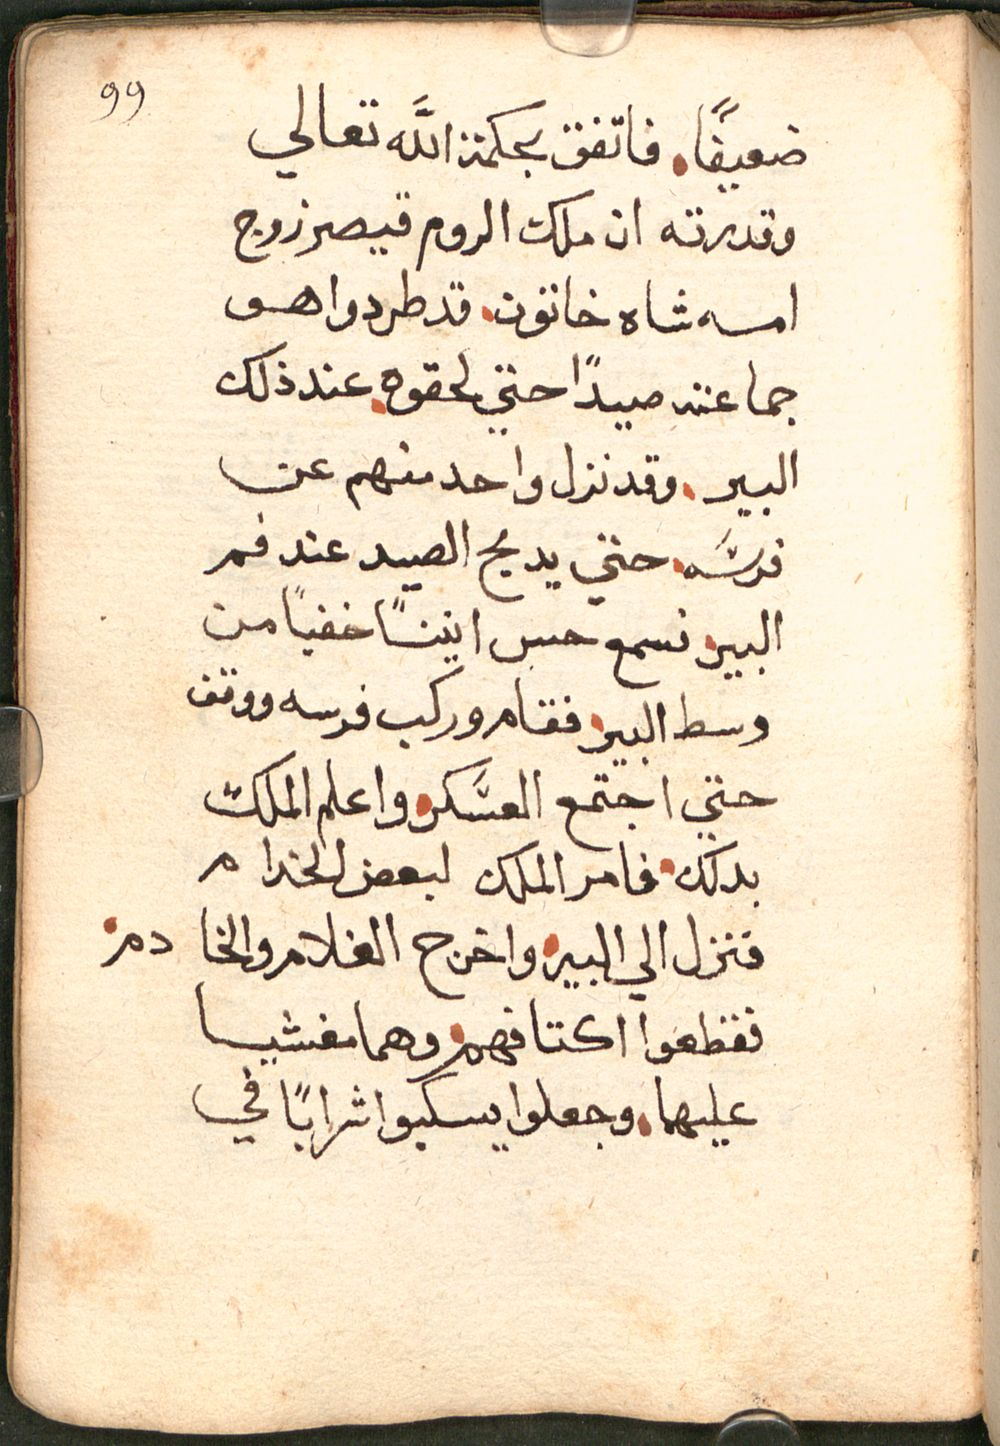 99
ضعيفًا. فاتفق بحكمة اللَّه تعالي
وقدرته ان ملك الروم قيصر زوج
امه شاه خاتون. قد طردوا هو و
جماعته صيدًا حتي لحقوه. عند ذلك
البير. وقد نزل واحد منهم عن
فرسَه. حتي يدبح الصيد عند فم
البير. فسمع حس انينًا خفيًا من
وسط البير. فقام وركب فرسه ووقف
حتي اجتمع العسَّكر. واعلم الملك
بدلك. فامر الملك لبعض الخدام
فنزل الي البير. واخرج الغلام والخادم.
فقطعوا اكتافهم. وهما مغشيا
عليهما. وجعلوا يسكبوا شرابًا في